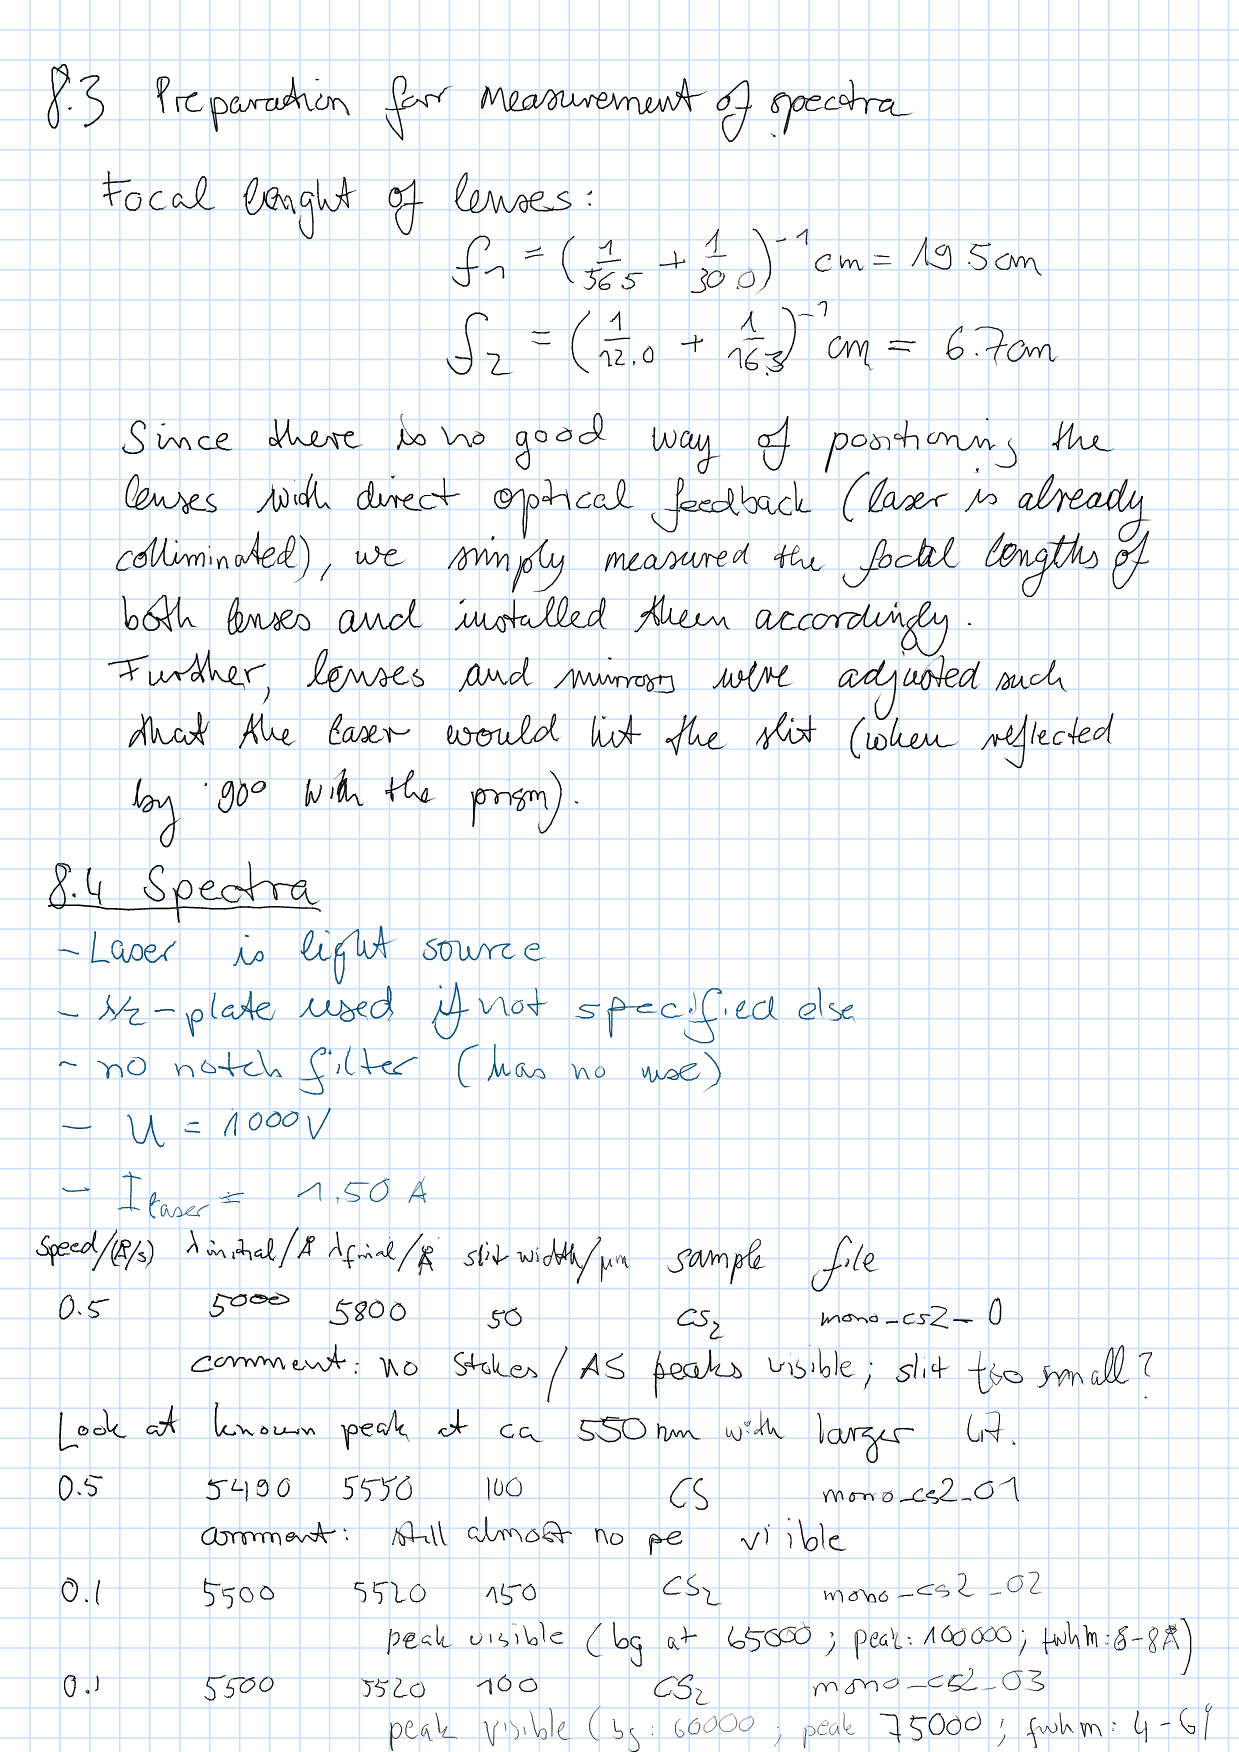 8.3 Preparation for measurement of spectra
Focal lenght of lenses:
f₁ = (1/56.5 + 1/30.0)⁻¹ cm = 19.5cm
f₂ = (1/12.0 + 1/16.3)⁻¹ cm = 6.7cm
Since there is no good way of positioning the
lenses with direct optical feedback (laser is already
colliminated), we simply measured the focal lengths of
both lenses and installed them accordingly.
Further, lenses and mirrors were adjusted such
that the laser would hit the slit (when reflected
by 90° with the prism).
8.4 Spectra
- Laser is light source
- λ/2-plate used if not specified else
- no notch filter (has no use)
- U = 1000V
- I laser = 1.50 A
Speed/(Å/s) λinitial/Å λfinal/Å slit width/μm sample file
0.5 5000 5800 50 CS₂ mono_cs2_0
comment: no Stokes/AS peaks visible; slit too small?
Look at known peak at ca 550nm with larger
0.5 5490 5550 100 CS mono_cs2_01
comment: still almost no pe visible
0.1 5500 5520 150 CS₂ mono_cs2_02
peak visible (bg at 65000; peak: 100000; fwhm: 6-8Å)
0.1 5500 5520 100 CS₂ mono_cs2_03
peak visible (bg: 60000; peak 75000; fwhm: 4-6